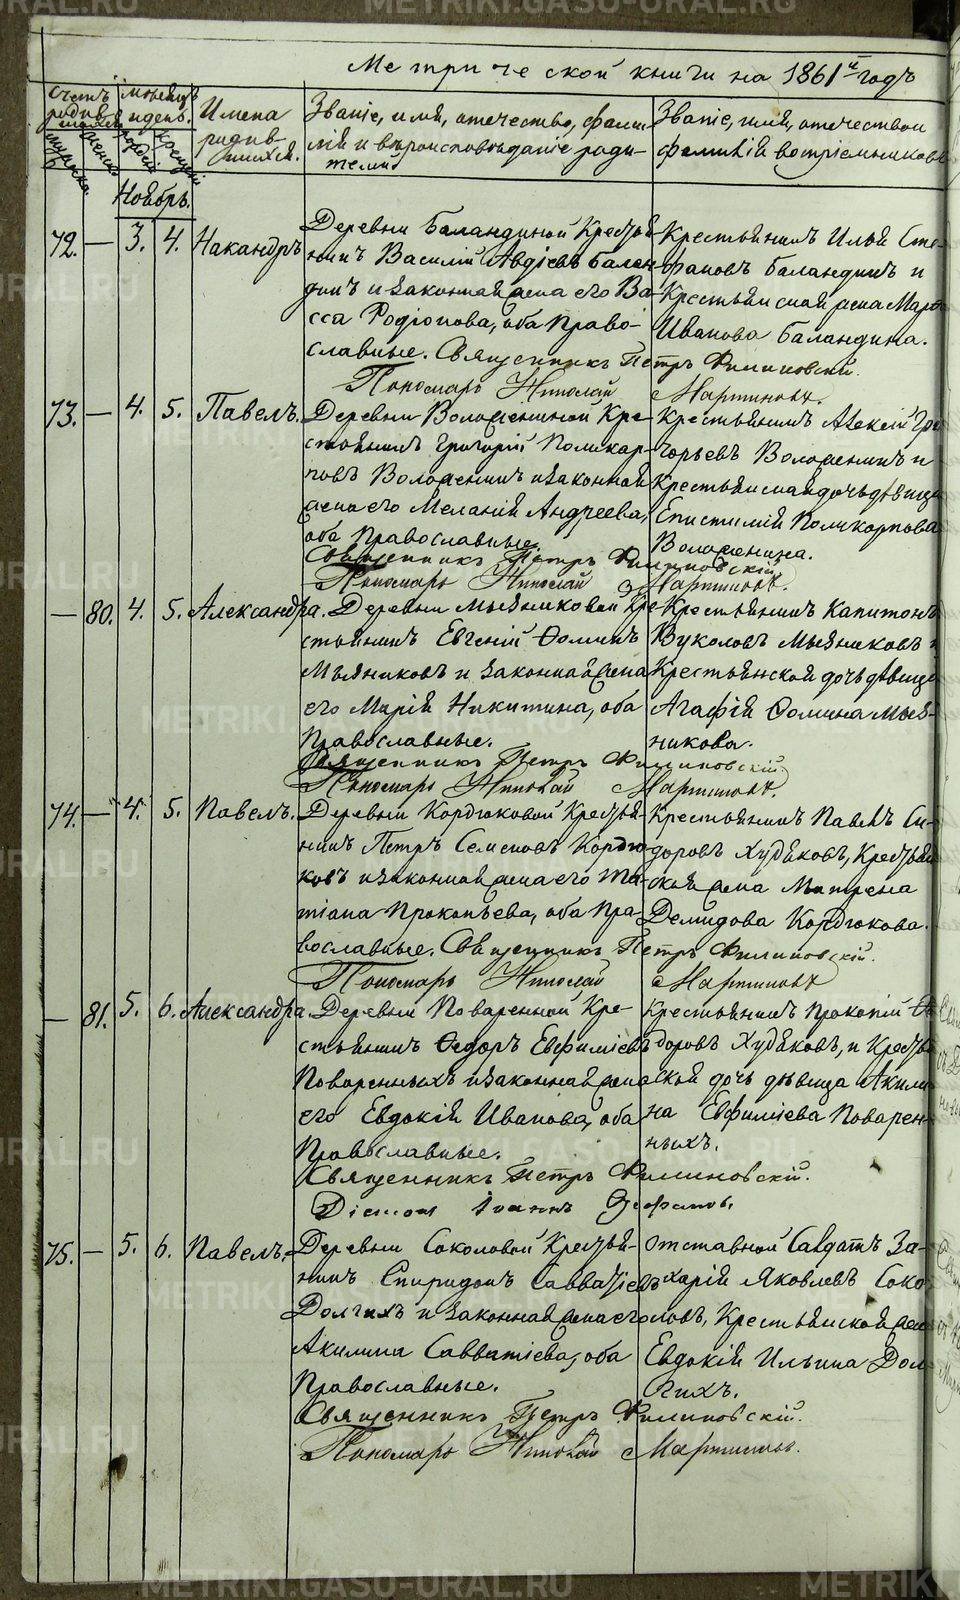 Метрической книги на 1861й годъ
Счетъ родившихся
мужеска
женска
Мѣсяцъ и день.
рожденія
крещенія
Имена родившихся.
Званіе, имя, отечество, фамилій и вѣроисповѣданіе родителей
Званіе, имя, отечество и фамилій воспріемниковъ
Ноябрь.
72. — 3. 4. Никандръ
Деревни Баландиной Крестья-
нинъ Василій Авдіевъ Балан-
динъ и законная жена его Ва-
сса Родіонова, оба Право-
славные. Священникъ Петръ Филиповскій.
Пономарь Николай Мартиновъ.
Крестьянинъ Илья Сте-
фановъ Баландинъ и
Крестьянская жена Марѳа
Иванова Баландина.
73. — 4. 5. Павелъ.
Деревни Воложениной Кре-
стьянинъ Григорій Поликар-
повъ Воложенинъ и законная
жена его Меланія Андреева,
оба Православные.
Священникъ Петръ Филиповскій
Пономарь Николай Мартиновъ.
Крестьянинъ Алексій Гри-
горьевъ Воложенинъ и
Крестьянская дочь дѣвица
Епистимія Поликарпова
Воложенина.
— 80. 4. 5. Александра.
Деревни Мызниковой Кре-
стьянинъ Евгеній Ѳоминъ
Мызниковъ и законная жена
его Марія Никитина, оба
Православные.
Священникъ Петръ Филиповскій.
Пономарь Николай Мартиновъ.
Крестьянинъ Капитонъ
Вуколовъ Мызниковъ и
Крестьянской дочь дѣвица
Агафія Ѳомина Мыз-
никова.
74. — 4. 5. Павелъ.
Деревни Кордюковой Крестья-
нинъ Петръ Семеновъ Кордю-
ковъ и законная жена его Та-
тіана Прокопьева, оба Пра-
вославные. Священникъ Петръ Филиповскій.
Пономарь Николай Мартиновъ
Крестьянинъ Павелъ Си-
доровъ Худяковъ, Крестьян-
ская жена Матрена
Демидова Кордюкова.
— 81. 5. 6. Александра.
Деревни Поваренной Кре-
стьянинъ Ѳедоръ Евфиміевъ
Поваренныхъ и законная жена
его Евдокія Иванова, оба
Православные.
Священникъ Петръ Филиповскій.
Діаконъ Іоаннъ
Крестьянинъ Прокопій Ѳе-
доровъ Худяковъ, и Крестьян-
ской дочь дѣвица Акили-
на Евфиміева Поварен-
ныхъ.
75. — 5. 6. Павелъ.
Деревни Соколовой Крестья-
нинъ Спиридонъ Савватіевъ
Долгихъ и законная жена его
Акилина Савватіева, оба
Православные.
Священникъ Петръ Филиповскій.
Пономарь Николай Мартиновъ.
Отставной Салдатъ За-
харій Яковлевъ Соко-
ловъ, Крестьянской жена
Евдокія Ильина Дол-
гихъ.
METRIKI.GASO-URAL.RU